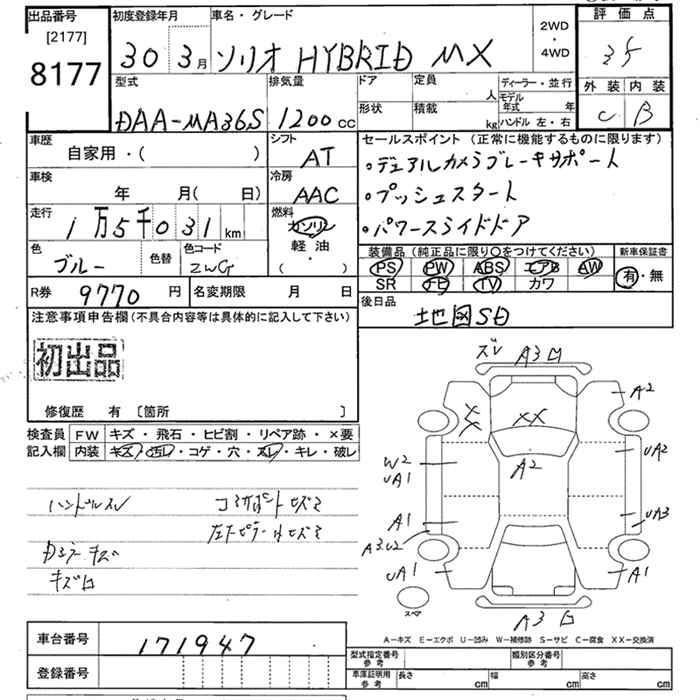 出品番号
[2177]
8177
初度登録年月
30 3月
車名・グレード
ソリオ HYBRID MX
2WD
・
4WD
評価点
3.5
外装 内装
C B
型式
DAA-MA36S
排気量
1200cc
ドア
形状
定員
人
積載
kg
ディーラー・並行
モデル年式 年
ハンドル 左・右
車歴
自家用・( )
車検
年 月( 日)
走行
1万5千031km
色
ブルー
色替
色コード
ZWG
シフト
AT
冷房
AAC
燃料
ガソリン
軽油・
( )
セールスポイント(正常に機能するものに限ります)
・デュアルカメラブレーキサポート
・プッシュスタート
・パワースライドドア
装備品(純正品に限り○をつけてください)
PS PW ABS エアB AW
SR ナビ TV カワ
新車保証書
有・無
R券 9770円
名変期限 月 日
後日品
地図SD
注意事項申告欄(不具合内容等は具体的に記入して下さい)
初出品
修復歴 有 [箇所 ]
検査員記入欄
FW キズ・飛石・ヒビ割・リペア跡・×要
内装 キズ・汚レ・コゲ・穴・スレ・キレ・破レ
ハンドルスレ
キズ
ズレ A3
A2
XX
A2
UA2
W2
UA1
A1
UA3
A3U2
UA1
A1
スペア
A3
A-キズ E-エクボ U-凹み W-補修跡 S-サビ C-腐食 XX-交換済
車台番号 171947
登録番号
型式指定番号
参考
類別区分番号
参考
車庫証明用
参考
長さ cm
幅 cm
高さ cm